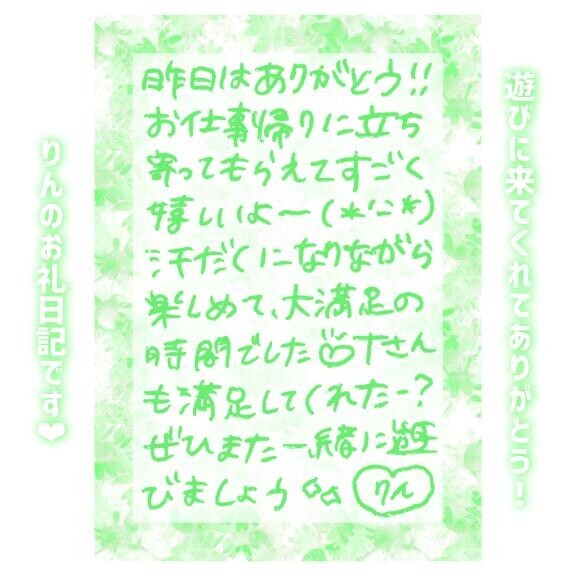 遊びに来てくれてありがとう!
昨日はありがとう!!
お仕事帰りに立ち
寄ってもらえてすごく
嬉しいよ〜(*'ﾆ*)
汗だくになりながら
楽しめて、大満足の
時間でした♡Tさん
も満足してくれたー?
ぜひまた一緒に遊
びましょう◇◇ りん
りんのお礼日記です❤